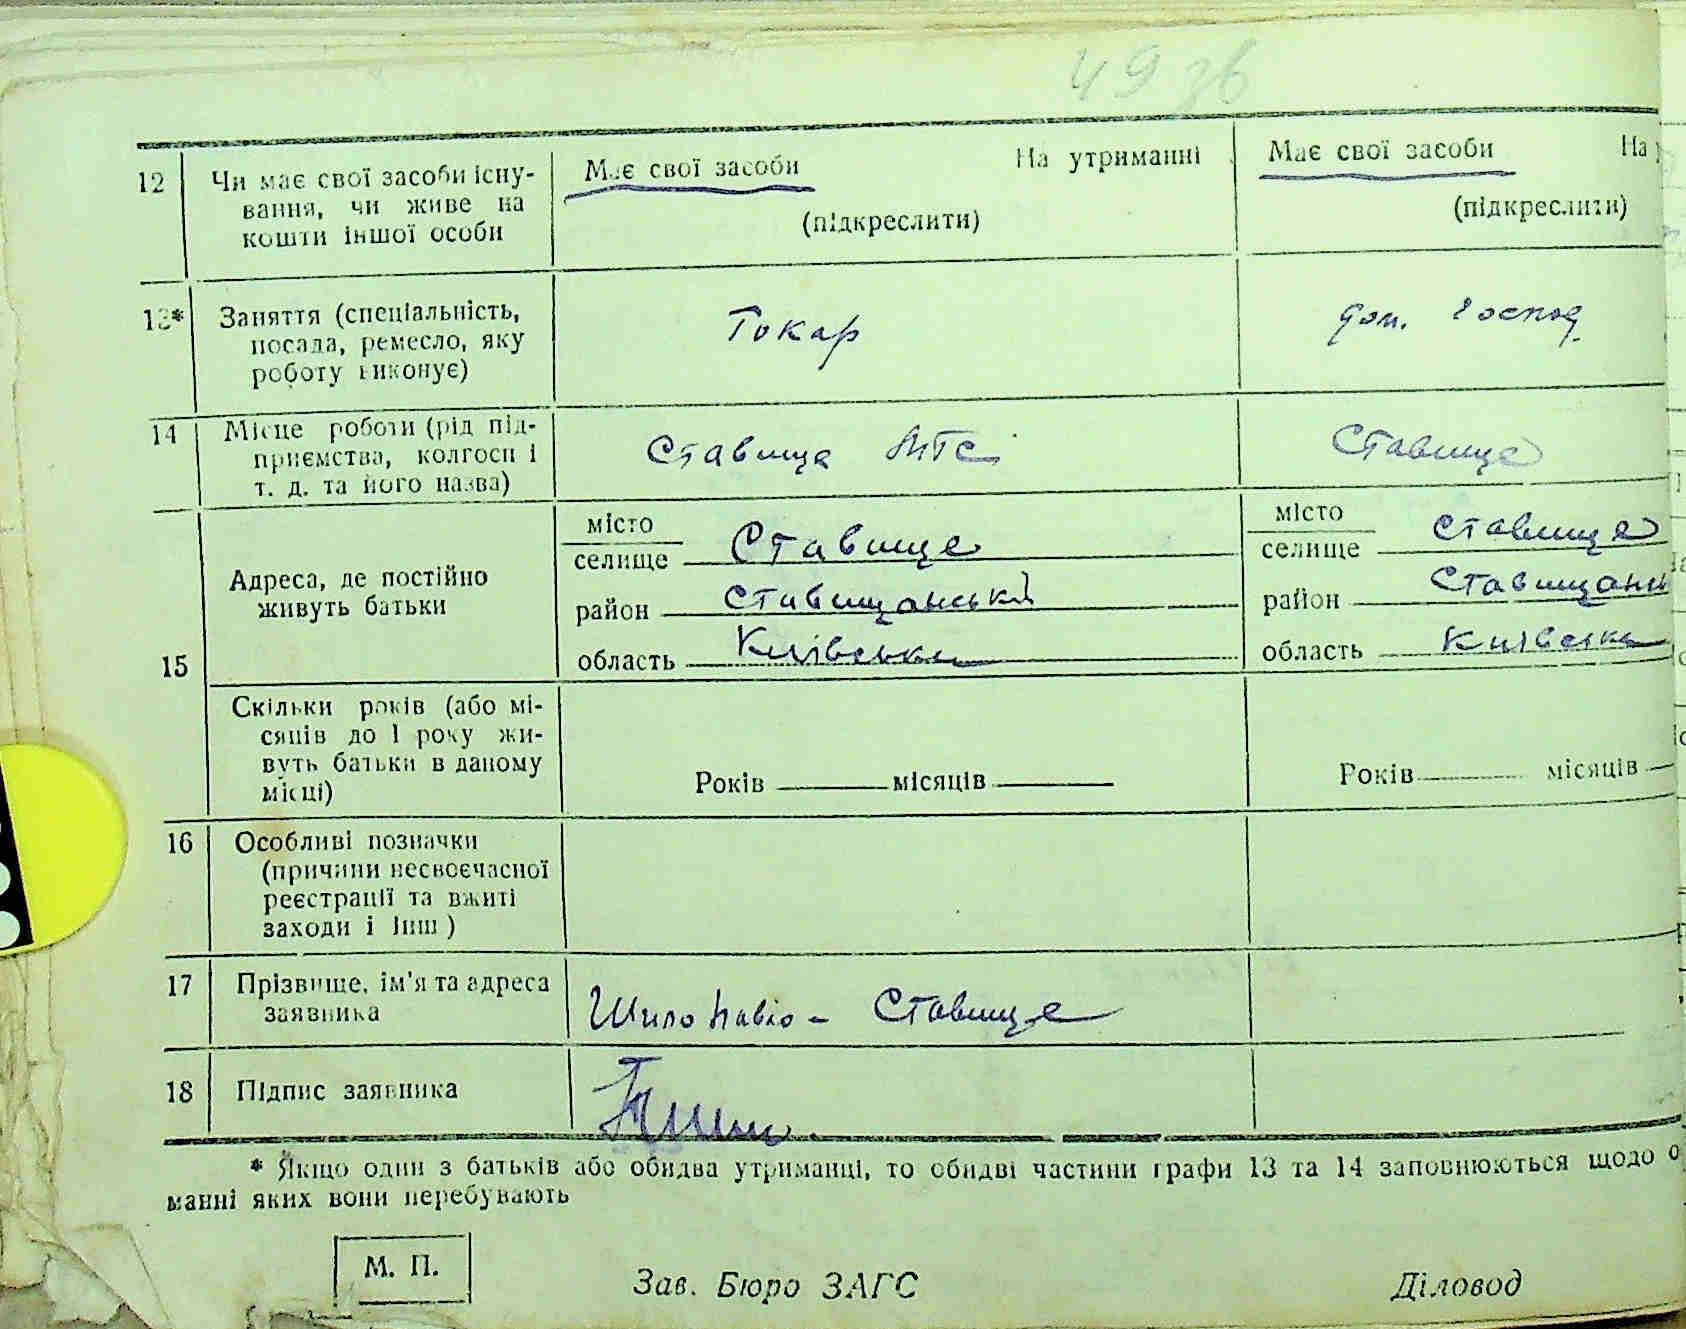 49 зв
12 Чи має свої засоби існу- Має свої засоби На утриманні Має свої засоби На
вання, чи живе на
кошти іншої особи (підкреслити) (підкреслити)
13* Заняття (спеціальність, Токар дом. господ.
посада, ремесло, яку
роботу виконує)
14 Місце роботи (рід під- Ставище МТС Ставище
приємства, колгосп і
т. д. та його назва)
15
Адреса, де постійно
живуть батьки
місто
селище Ставище
район Ставищанський
область Київська
місто
селище Ставище
район Ставищан
область Київська
Скільки років (або мі-
сяців до 1 року жи-
вуть батьки в даному
місці)
Років місяців Років місяців
16 Особливі позначки
(причини несвоєчасної
реєстрації та вжиті
заходи і інш)
17 Прізвище, ім'я та адреса
заявника
Шило Павло - Ставище
18 Підпис заявника
* Якщо один з батьків або обидва утриманці, то обидві частини графи 13 та 14 заповнюються щодо о
манні яких вони перебувають
М. П.
Зав. Бюро ЗАГС Діловод